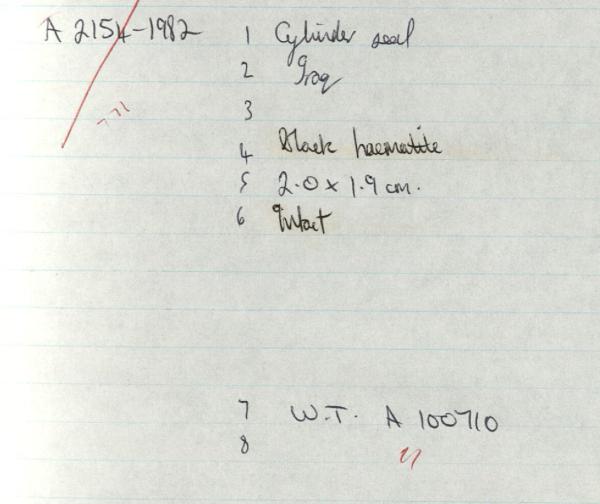 A 2154-1982 1 Cylinder seal
2 Iraq
3
4 Black haematite
5 2.0 x 1.9 cm.
6 Intact
7 W.T. A 100710
8